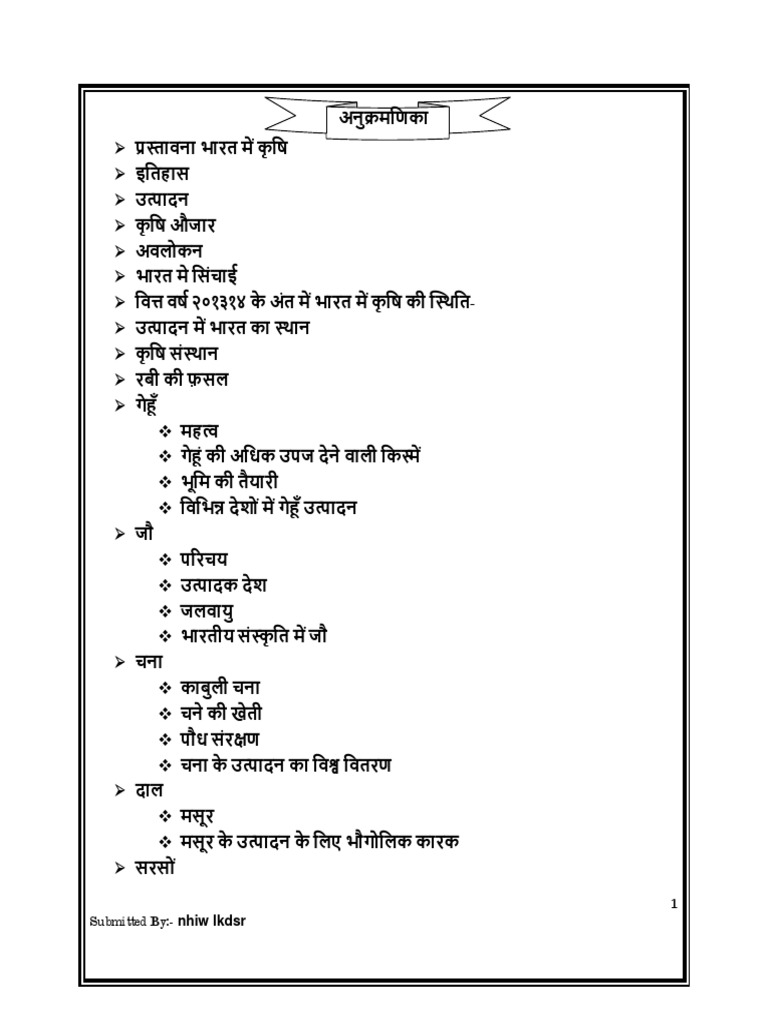 अनुक्रमणिका
➢ प्रस्तावना भारत में कृषि
➢ इतिहास
➢ उत्पादन
➢ कृषि औजार
➢ अवलोकन
➢ भारत मे सिंचाई
➢ वित्त वर्ष २०१३१४ के अंत में भारत में कृषि की स्थिति-
➢ उत्पादन में भारत का स्थान
➢ कृषि संस्थान
➢ रबी की फ़सल
➢ गेहूँ
❖ महत्व
❖ गेहूं की अधिक उपज देने वाली किस्में
❖ भूमि की तैयारी
❖ विभिन्न देशों में गेहूँ उत्पादन
➢ जौ
❖ परिचय
❖ उत्पादक देश
❖ जलवायु
❖ भारतीय संस्कृति में जौ
➢ चना
❖ काबुली चना
❖ चने की खेती
❖ पौध संरक्षण
❖ चना के उत्पादन का विश्व वितरण
➢ दाल
❖ मसूर
❖ मसूर के उत्पादन के लिए भौगोलिक कारक
➢ सरसों
1
Submitted By:- nhiw lkdsr